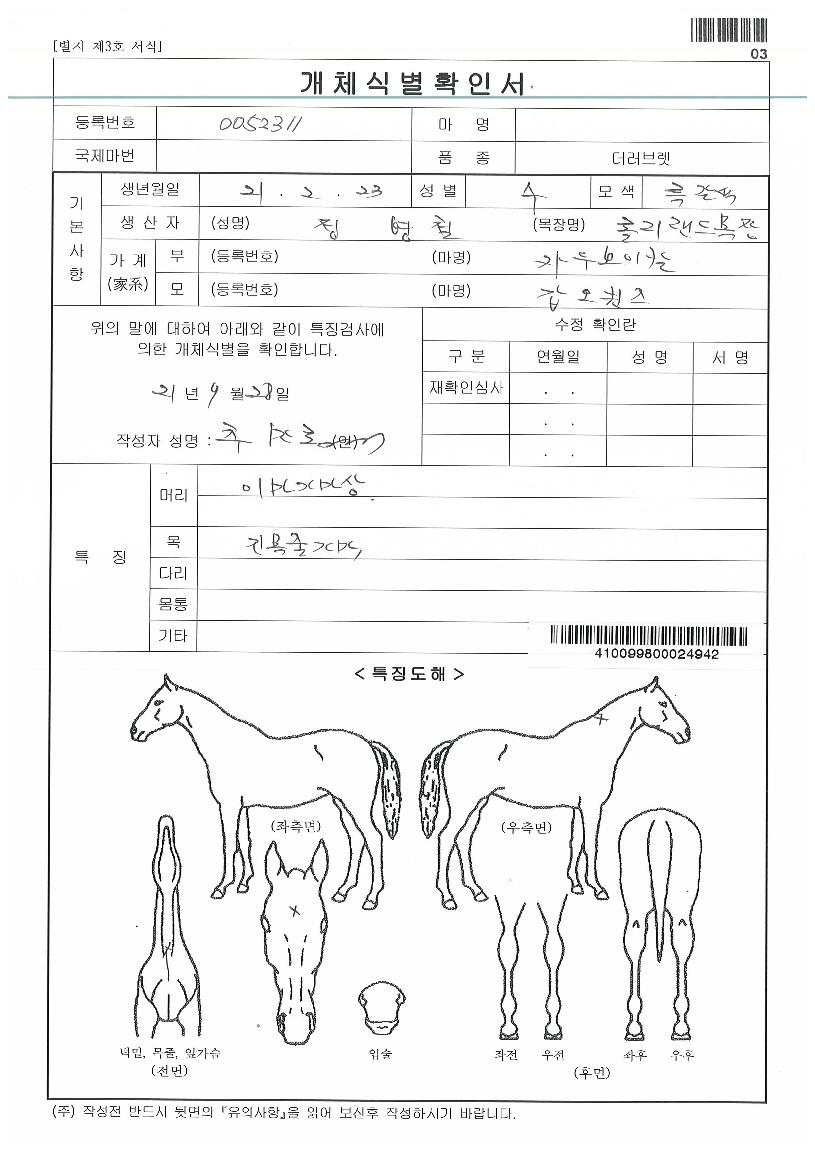 [별지 제3호 서식]
03
개체식별확인서
등록번호 0052311 마 명
국제마번 품 종 더러브렛
기본사항
생년월일 21 . 2 . 23 성 별 수 모 색 흑갈색
생 산 자 (성명) 정 영 철 (목장명) 홀리랜드목장
가 계 (家系) 부 (등록번호) (마명)
모 (등록번호) (마명)
위의 말에 대하여 아래와 같이 특징검사에
의한 개체식별을 확인합니다.
21 년 9 월 28 일
작성자 성명 : (인)
수정 확인란
구 분 연월일 성 명 서 명
재확인심사 . .
. .
. .
특 징
머리
목
다리
몸통
기타
410099800024942
< 특징도해 >
(좌측면) (우측면)
턱밑, 목줄, 앞가슴 입술 좌전 우전 좌후 우후
(전면) (후면)
(주) 작성전 반드시 뒷면의 『유의사항』을 읽어 보신후 작성하시기 바랍니다.